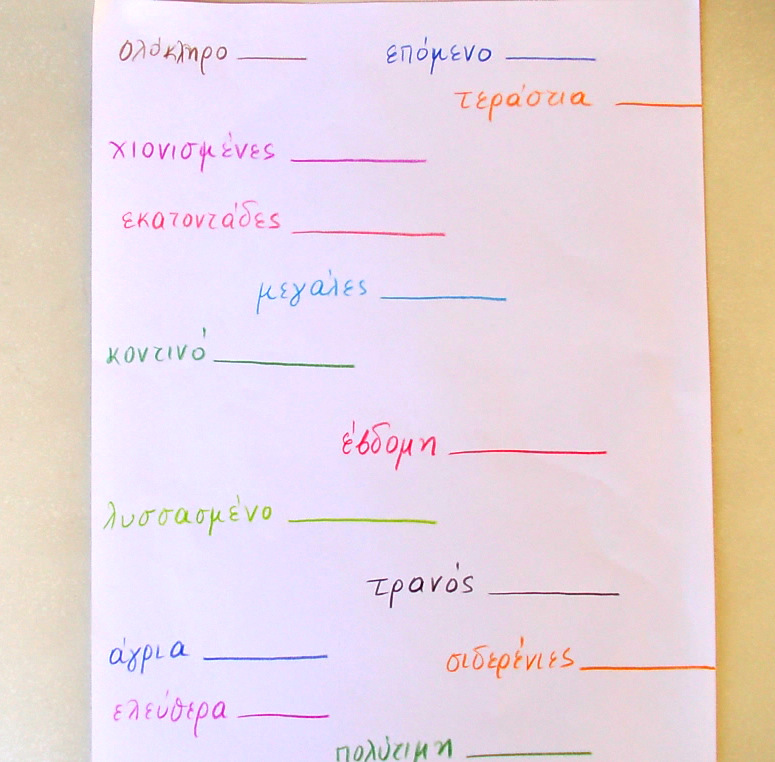 ολόκληρο ______ επόμενο ______
τεράστια ______
χιονισμένες ______
εκατοντάδες ______
μεγάλες ______
κοντινό ______
έβδομη ______
λυσσασμένο ______
τρανός ______
άγρια ______ σιδερένιες ______
ελεύθερα ______
πολύτιμη ______